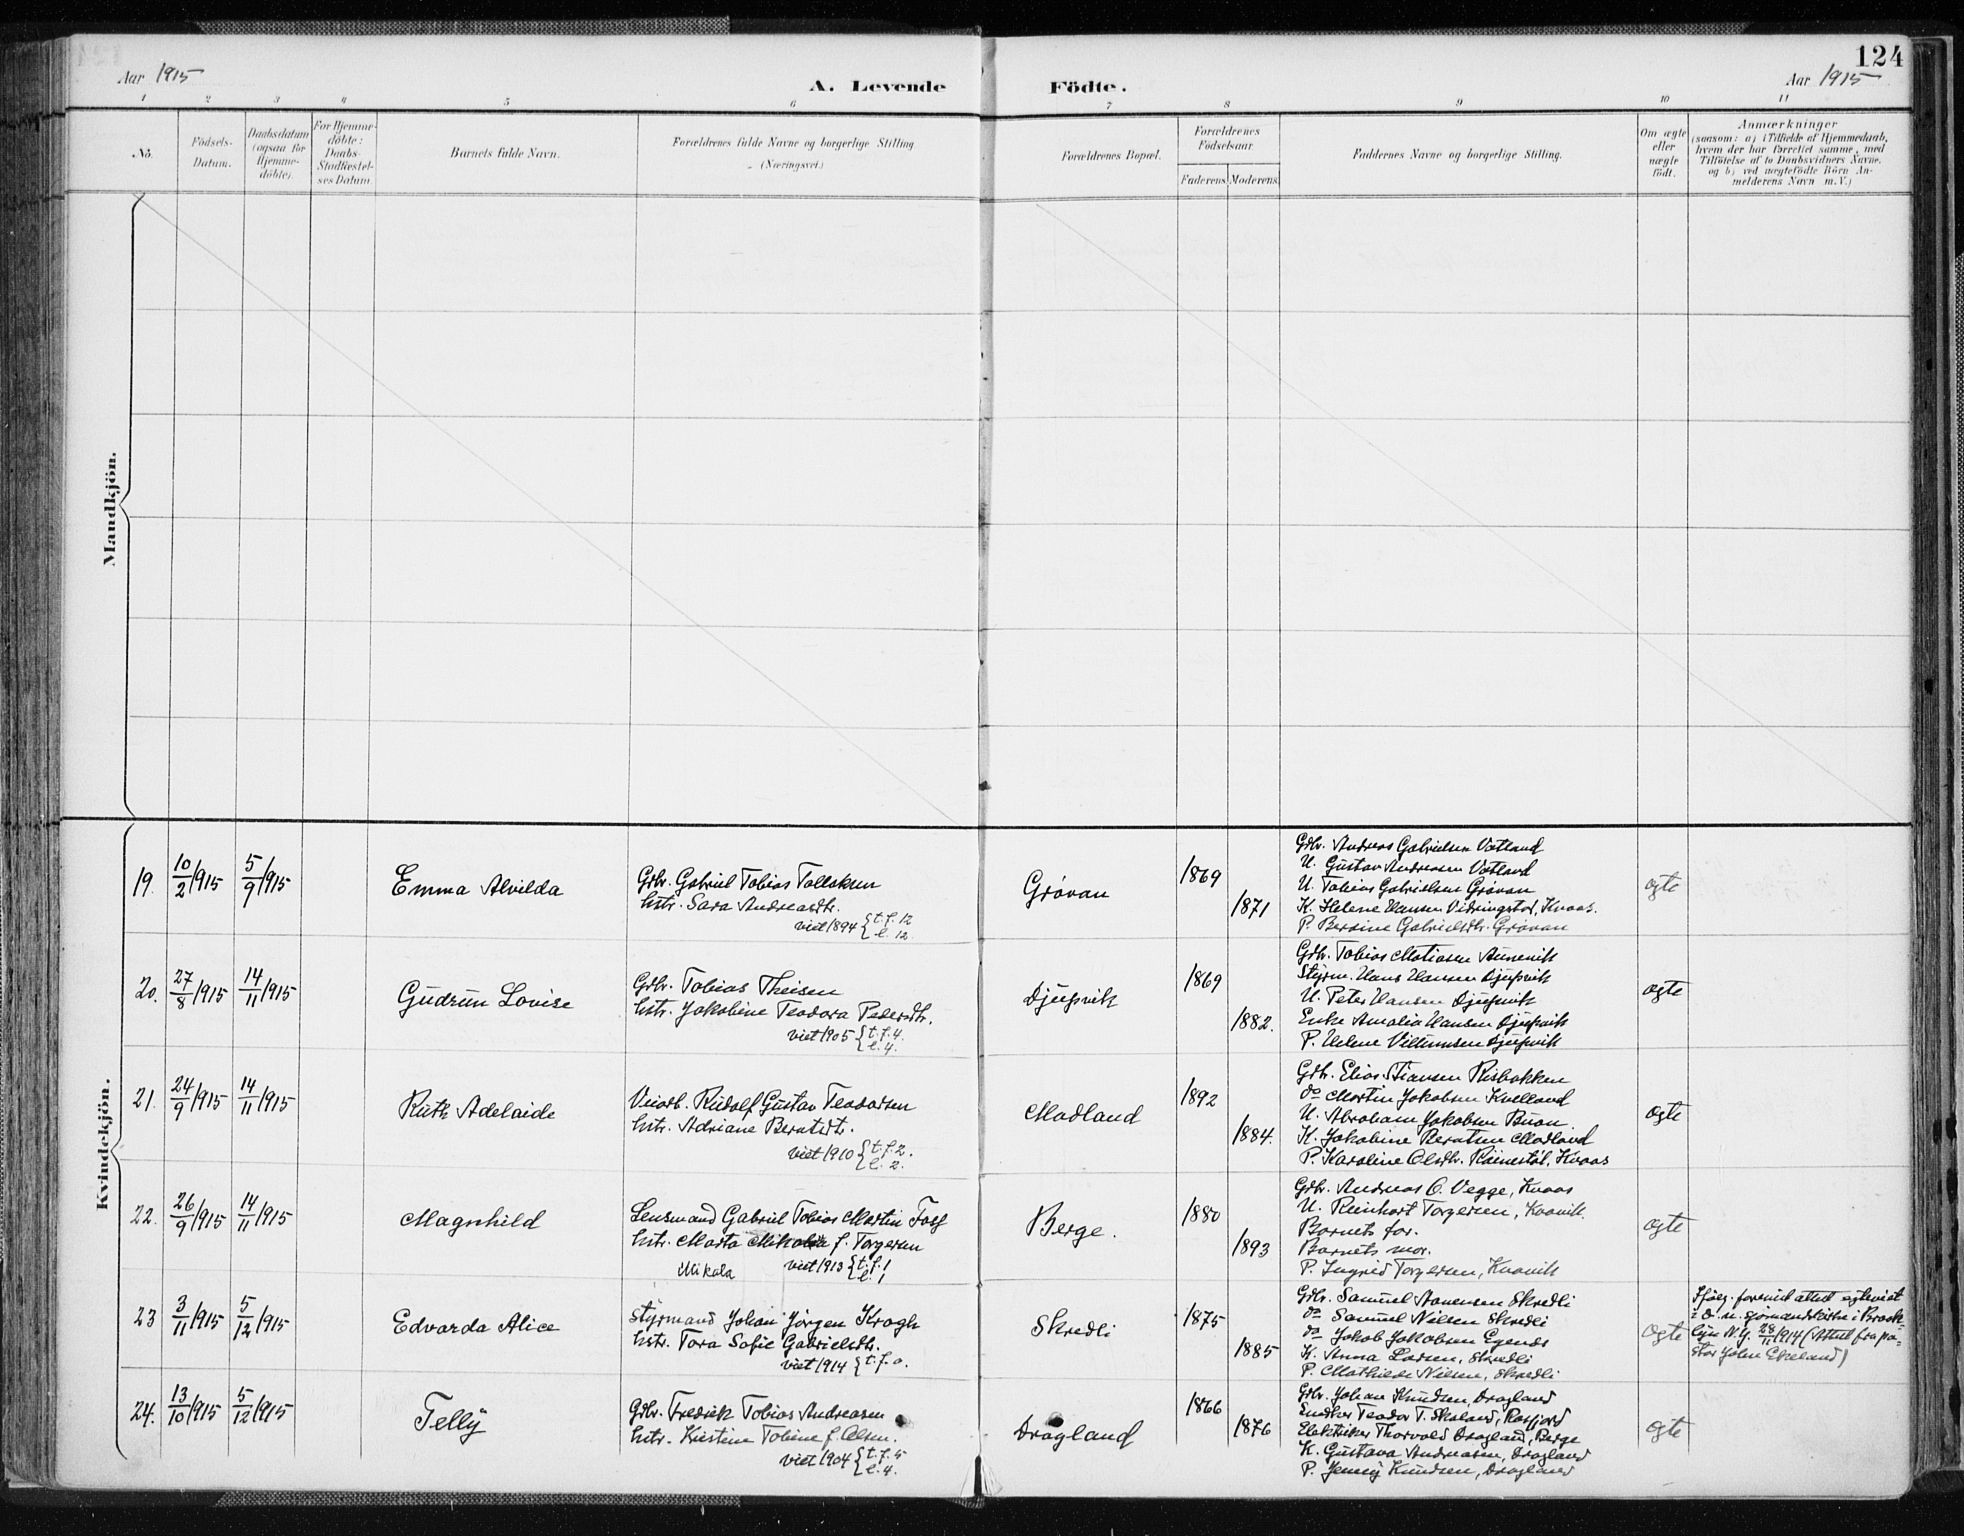 124
Aar 1915
A. Levende Födte.
Aar 1915
1 2 3 4 5 6 7 8 9 10 11
No.
Födsels-
Datum.
Daabsdatum
(ogsaa for
Hjemme-
döbte).
For Hjemme-
döbte:
Daabs-
Stadfæstel-
ses Datum
Barnets fulde Navn.
Forældrenes fulde Navne og borgerlige Stilling
(Næringsvei.)
Forældrenes Bopæl.
Forældrenes
Födselsaar.
Faderens Moderens
Faddernes Navne og borgerlige Stilling.
Om ægte
eller
uægte
födt.
Anmærkninger
(saasom: a) i Tilfælde af Hjemmedaab,
hvem der har forrettet samme, med
Tilföielse af to Daabsvidners Navne,
og b) ved uægtefödte Börn An-
melderens Navn m. V.)
Mandkjön.
Kvindekjön.
19. 10/2 1915 5/9 1915
Emma Alvilda
Gdbr. Gabriel Tobias Tallaksen
hstr. Sara Andreasdtr.
viet 1894 { t.f. 12
l. 12
Grövan
1869
1871
Gdbr. Andreas Gabrielsen Vatland
U. Gustav Andreasen Vatland
U. Tobias Gabrielsen Grövan
K. Helene Hansen Kvaas.
P. Gabrielsdtr. Grövan
ægte
20. 27/8 1915 14/11 1915
Gudrun Lovise
Gdbr. Tobias Theisen
hstr. Jakobine Teodora Pedersdtr.
viet 1905 { t.f. 4.
l. 4.
Djupvik
1869
1882.
Gdbr. Tobias Matiasen
Styrm. Hans Hansen Djupvik
U. Peter Hansen Djupvik
Enke Amalia Hansen Djupvik
P. Helene Villumsen Djupvik
ægte
21. 24/9 1915 14/11 1915
Ruth Adelaide
Veiarb. Rudolf Gustav Teodorsen
hstr. Adriane Berntsdtr.
viet 1910 { t.f. 2.
l. 2.
Madland
1892
1884.
Gdbr. Elias Stiansen Risbakken
do Martin Jakobsen Kvelland
U. Abraham Jakobsen Buan
K. Jakobine Berntsen Madland
P. Karoline Olsdtr. Kvaas
ægte
22. 26/9 1915 14/11 1915
Magnhild
Lensmand Gabriel Tobias Martin
hstr. Marta f. Torgersen
Mikala viet 1913 { t.f. 1
l. 1
Berge.
1880
1893
Gdbr. Andreas O. Vegge, Kvaas
U. Reinhart Torgersen, Kvavik.
Barnets far.
Barnets mor.
P. Ingrid Torgersen, Kvavik
ægte
23 3/11 1915 5/12 1915
Edvarda Alice
Styrmand Johan Jørgen Krogh
hstr. Tora Sofie Gabrielsdtr.
viet 1914 { t.f. 0.
Skredli
1875
1885
Gdbr. Samuel Aanensen Skredli
do Samuel Nilsen Skredli
do Jakob Jakobsen Egenes
K. Anna Larsen, Skredli
P. Mathilde Nilsen, Skredli
ægte
Ifølg. forevist attest egteviet
i D. n. sjømandskirke i Brook-
lyn N.Y. 28/ 1914 (Attest fra pa-
stor John Ekeland)
24. 13/10 1915 5/12 1915
Telly
Gdbr. Fredrik Tobias Andreasen
hstr. Kirstine Tobine f. Olsen.
viet 1904 { t.f. 5
l. 4.
Dragland
1866
1876
Gdbr. Johan Knudsen, Dragland
Teodor T. Skeland, Rosfjord
Elektriker Thorvald Dragland, Berge
K. Gustava Andreasen, Dragland
P. Jenny Knudsen, Dragland
ægte